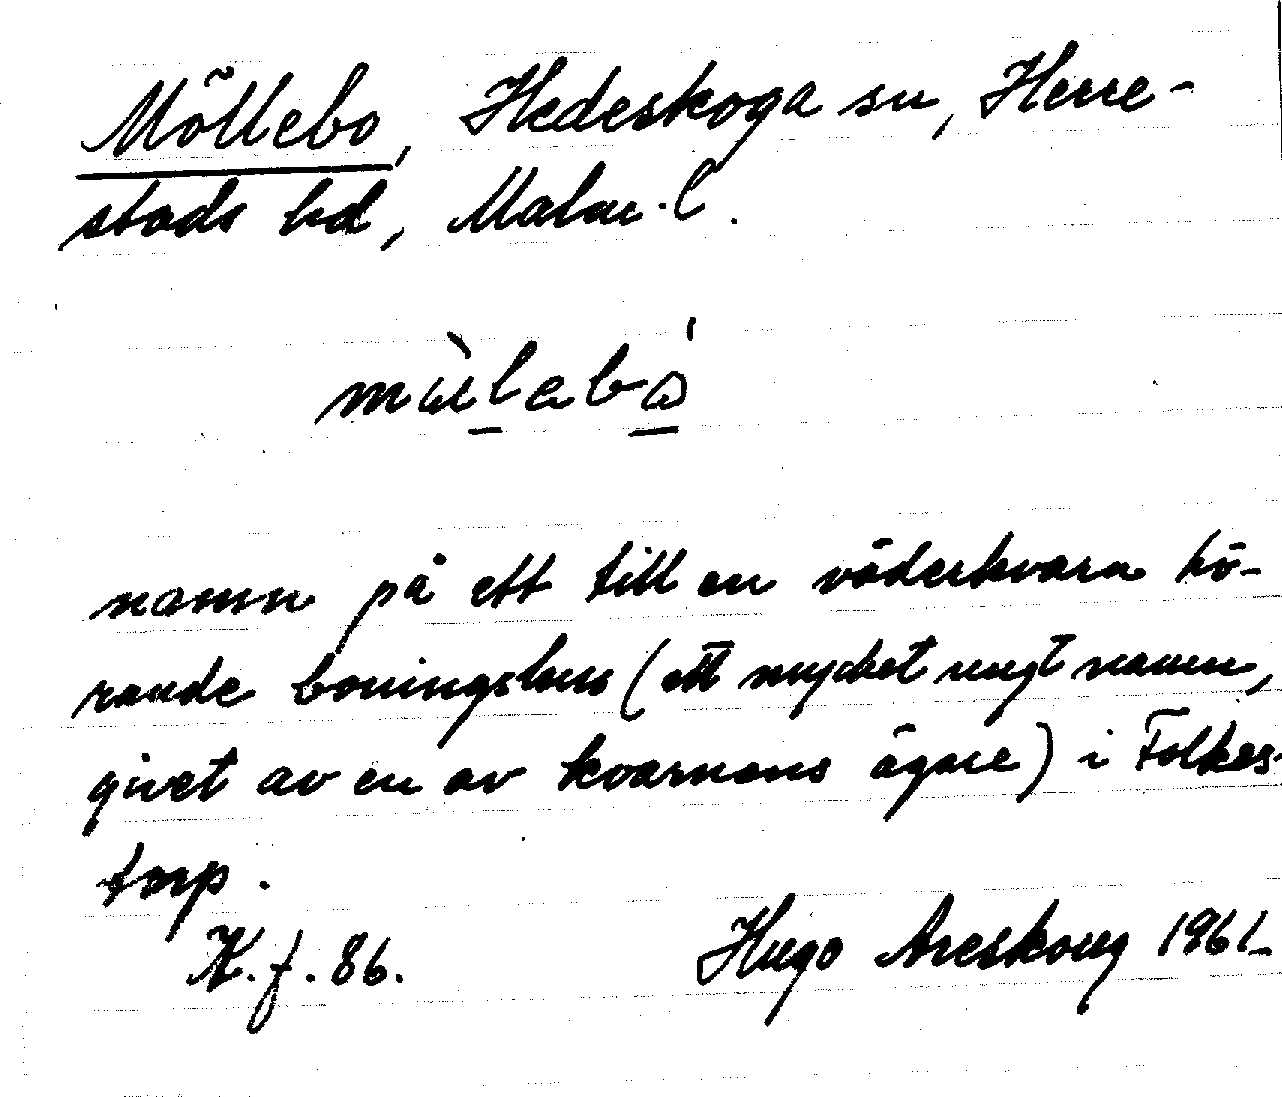 Möllebo, Hedeskoga sn, Herre-
stads hd, Malm. l.
namn på ett till en väderkvarn hö-
rande boningshus (ett mycket ungt namn,
givet av en av kvarnens ägare) i Folkes-
torp.
K. f. 86. Hugo Areskoug 1961